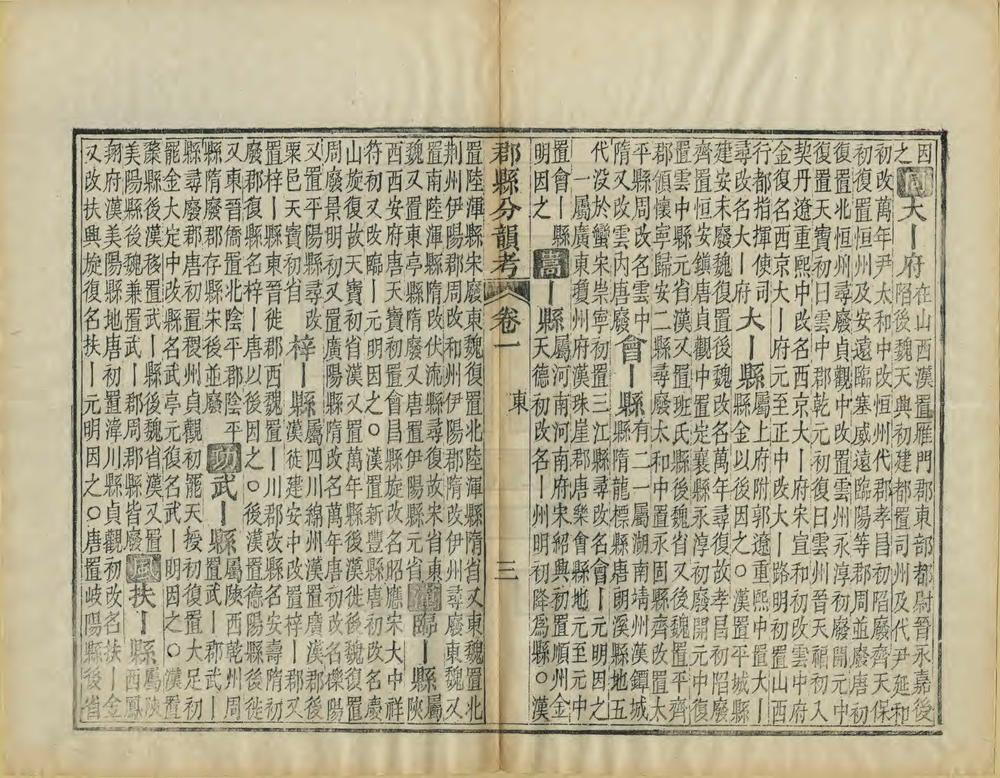 因
之
同大丨府
在山西漢置雁門郡東部都尉晉永嘉後
陷後魏天興初建都置司州及代尹延和
初改萬年尹太和中改恒州代郡孝昌初陷廢齊天保
初復置恒州及安遠臨塞威遠臨陽等郡周並廢唐初
復置北恒州尋廢貞觀中改置雲州永淳初廢開元中
復置天寶初曰雲中郡乾元初復曰雲州晉天福初入
契丹遼重熙中改名西京大丨府宋宣和初改雲中府
金復名西京大丨府元至正中改大丨路明初置山西
行都指揮使司
尋改名大丨府
大丨縣
屬上府附郭遼重熙中置大丨
縣金以後因之〇漢置平城縣
建安末廢後復置後魏改名萬年尋復故孝昌初陷廢
齊置恒安鎮唐貞觀中置定襄縣永淳初廢開元中復
置雲中縣元省漢又置班氏縣後魏省又後魏置平齊
郡領懷寧歸安二縣尋廢太和中置永固縣齊改置太
平縣周改名雲中
隋又改雲內唐廢
會丨縣
有二一屬湖南靖州漢鐔城
隋龍標縣唐朗溪縣地五
代没於蠻宋崇寧初置三江縣尋改名會丨元明因之
一屬廣東瓊州府漢珠崖郡唐樂會縣地元至元中
置會丨縣
明因之
嵩丨縣
屬河南河南府宋紹興初置順州金
天德初改名丨州明初降爲縣〇漢
郡縣分韻考 卷一 東 三
置陸渾縣宋廢東魏復置北陸渾縣隋省又東魏置北
荆州伊陽郡周改和州伊陽郡隋改伊州尋廢東魏又
置南陸渾縣隋改伏流縣尋復故宋省東
魏又置東亭縣隋廢又唐置伊陽縣元廢
臨丨縣
屬
陝
西西安府唐天寶初置會昌縣旋改名昭應宋大中祥
符初又改臨丨元明因之〇漢置新豐縣唐初改名慶
山旋復故天寶初省漢又置萬年縣後漢徙後魏復置
周廢景明初又置廣陽縣隋改名萬年唐初改名櫟陽
又置平陽縣尋改
粟邑天寶初省
梓丨縣
屬四川綿州漢置廣漢郡後
漢徙建安中改置梓丨郡又
置梓丨縣晉徙郡後魏置丨川郡改縣名安壽隋初
廢郡復縣名梓丨唐以後因之〇後漢置德陽縣後徙
又東晉僑置北陰平郡陰平
縣隋廢郡存縣宋後並廢
功武丨縣
屬陝西乾州周
置武丨郡武丨
縣尋廢郡唐初改置稷州貞觀初罷天授初復置大足初
罷金大定中改縣名武亭元復名武丨明因之〇漢置
斄縣後漢移置武丨縣後魏省漢又置
美陽縣後魏兼置武丨郡周郡縣皆廢
風扶丨縣
屬陝
西鳳
翔府漢美陽縣地唐初置湋川縣貞觀初改名扶丨金
又改扶興旋復名扶丨元明因之〇唐置岐陽縣後省